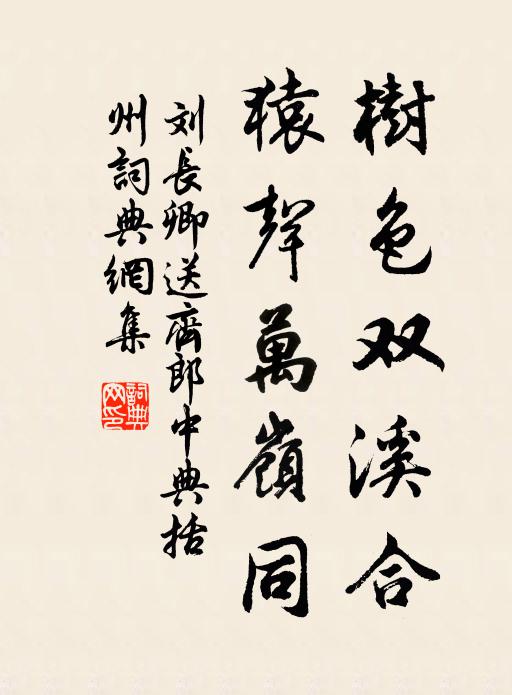 樹色双溪合
猿聲萬嶺同
刘長卿送齊郎中典括
州詞典網集
詞典網印